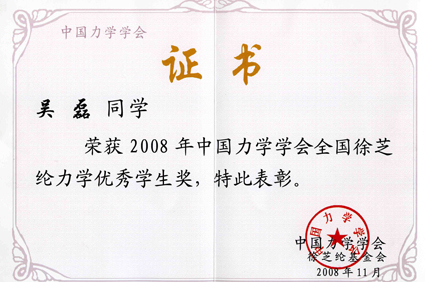 中国力学学会
证书
吴 磊 同学
荣获 2008 年中国力学学会全国徐芝
纶力学优秀学生奖，特此表彰。
中国力学学会
中国力学学会
徐芝纶基金会
2008 年 11 月